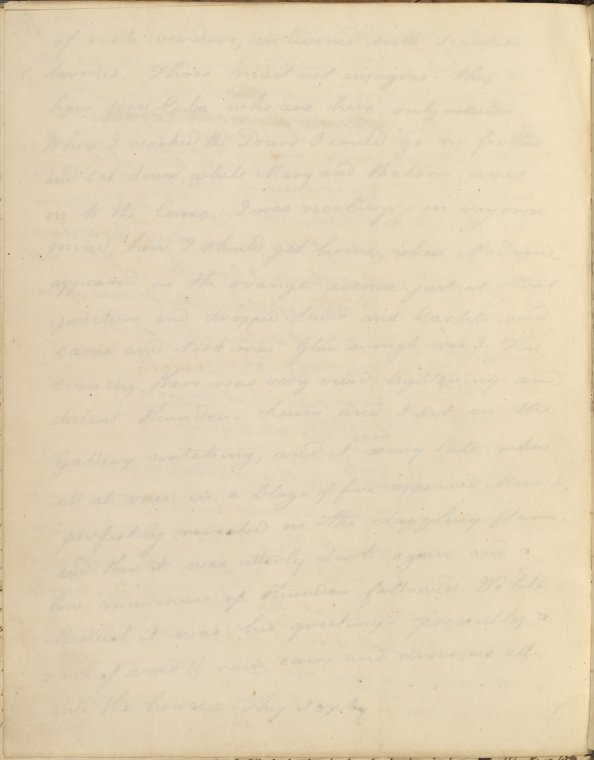 of rich verdure, enlivened with scarlet
berries. Those must not imagine they
have seen Cuba who are here only winter
When I reached the Drive I could go no farther
and sat down while Mary and were
on to the . I was revolving in my own
mind, how I should get home, when
appeared in the orange avenue just at that
juncture and dropped Luisa and Carlito and
came and took me, Glad enough was I. This
evening there was very vivid lightening and
distant thunder. Luisa and I sat on the
Gallery watching, and it very late, when
all at once in a blaze of fire appeared Manuel,
perfectly revealed in the dazzling flame,
and then it was utterly dark again and a
low murmur of thunder followed. We told
Manuel it was his greeting - presently a
rush of wind & rain came and drove us all
into the house